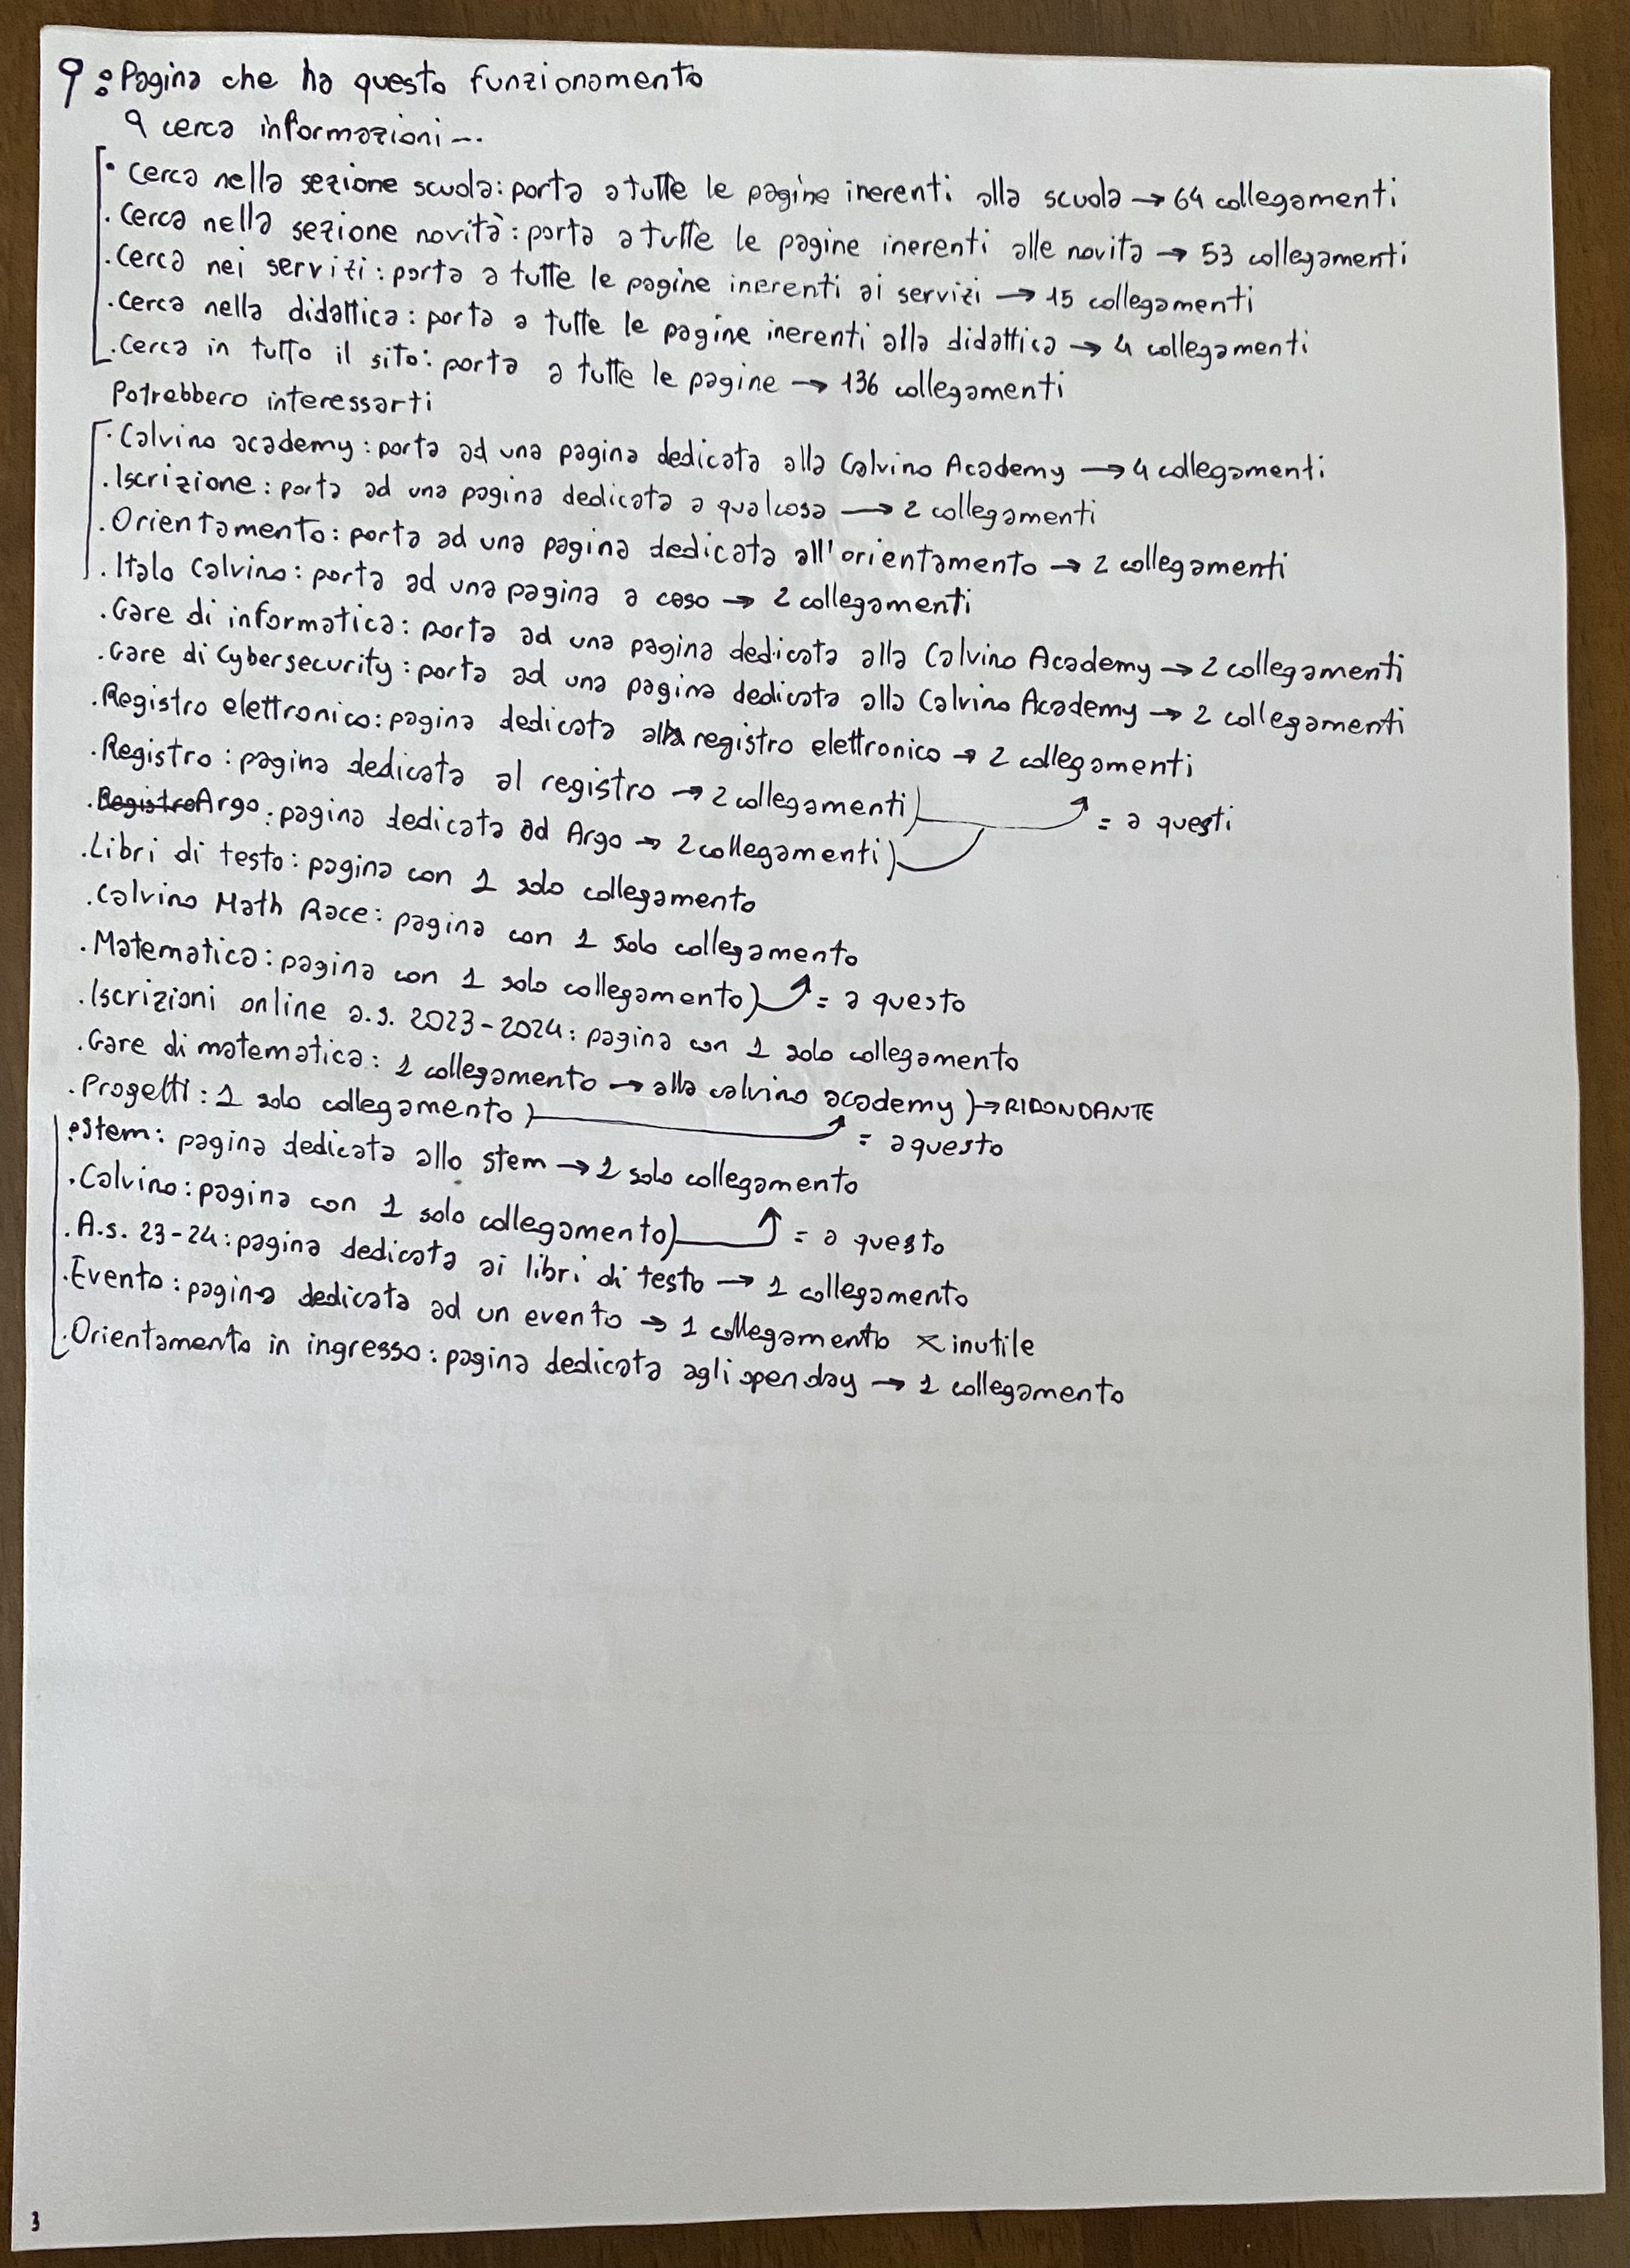 : Pagina che ha questo funzionamento
cerca informazioni...
• Cerca nella sezione scuola: porta a tutte le pagine inerenti alla scuola → 64 collegamenti
. Cerca nella sezione novità: porta a tutte le pagine inerenti alle novità → 53 collegamenti
. Cerca nei servizi: porta a tutte le pagine inerenti ai servizi → 15 collegamenti
. Cerca nella didattica: porta a tutte le pagine inerenti alla didattica → 4 collegamenti
. Cerca in tutto il sito: porta a tutte le pagine → 136 collegamenti
Potrebbero interessarti
. Calvino academy: porta ad una pagina dedicata alla Calvino Academy → 4 collegamenti
. Iscrizione: porta ad una pagina dedicata a qualcosa → 2 collegamenti
. Orientamento: porta ad una pagina dedicata all'orientamento → 2 collegamenti
. Italo Calvino: porta ad una pagina a caso → 2 collegamenti
. Gare di informatica: porta ad una pagina dedicata alla Calvino Academy → 2 collegamenti
. Gare di Cybersecurity: porta ad una pagina dedicata alla Calvino Academy → 2 collegamenti
. Registro elettronico: pagina dedicata alla registro elettronico → 2 collegamenti
. Registro: pagina dedicata al registro → 2 collegamenti) = a questi
. Registro Argo: pagina dedicata ad Argo → 2 collegamenti)
. Libri di testo: pagina con 1 solo collegamento
. Calvino Math Race: pagina con 1 solo collegamento
. Matematica: pagina con 1 solo collegamento) = a questo
. Iscrizioni online a.s. 2023-2024: pagina con 1 solo collegamento
. Gare di matematica: 1 collegamento → alla calvino academy) → RIDONDANTE
. Progetti: 1 solo collegamento) = a questo
• Stem: pagina dedicata allo stem → 1 solo collegamento
. Calvino: pagina con 1 solo collegamento) = a questo
. A.s. 23-24: pagina dedicata ai libri di testo → 1 collegamento
. Evento: pagina dedicata ad un evento → 1 collegamento x inutile
. Orientamento in ingresso: pagina dedicata agli open day → 1 collegamento
3